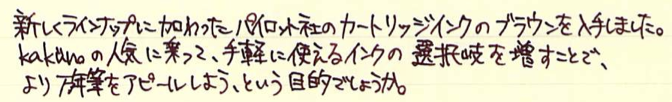 新しくラインナップに加わったパイロット社のカートリッジインクのブラウンを入手しました。
kakunoの人気に乗って、手軽に使えるインクの選択岐を増すことで、
より万年筆をアピールしよう、という目的でしょうか。